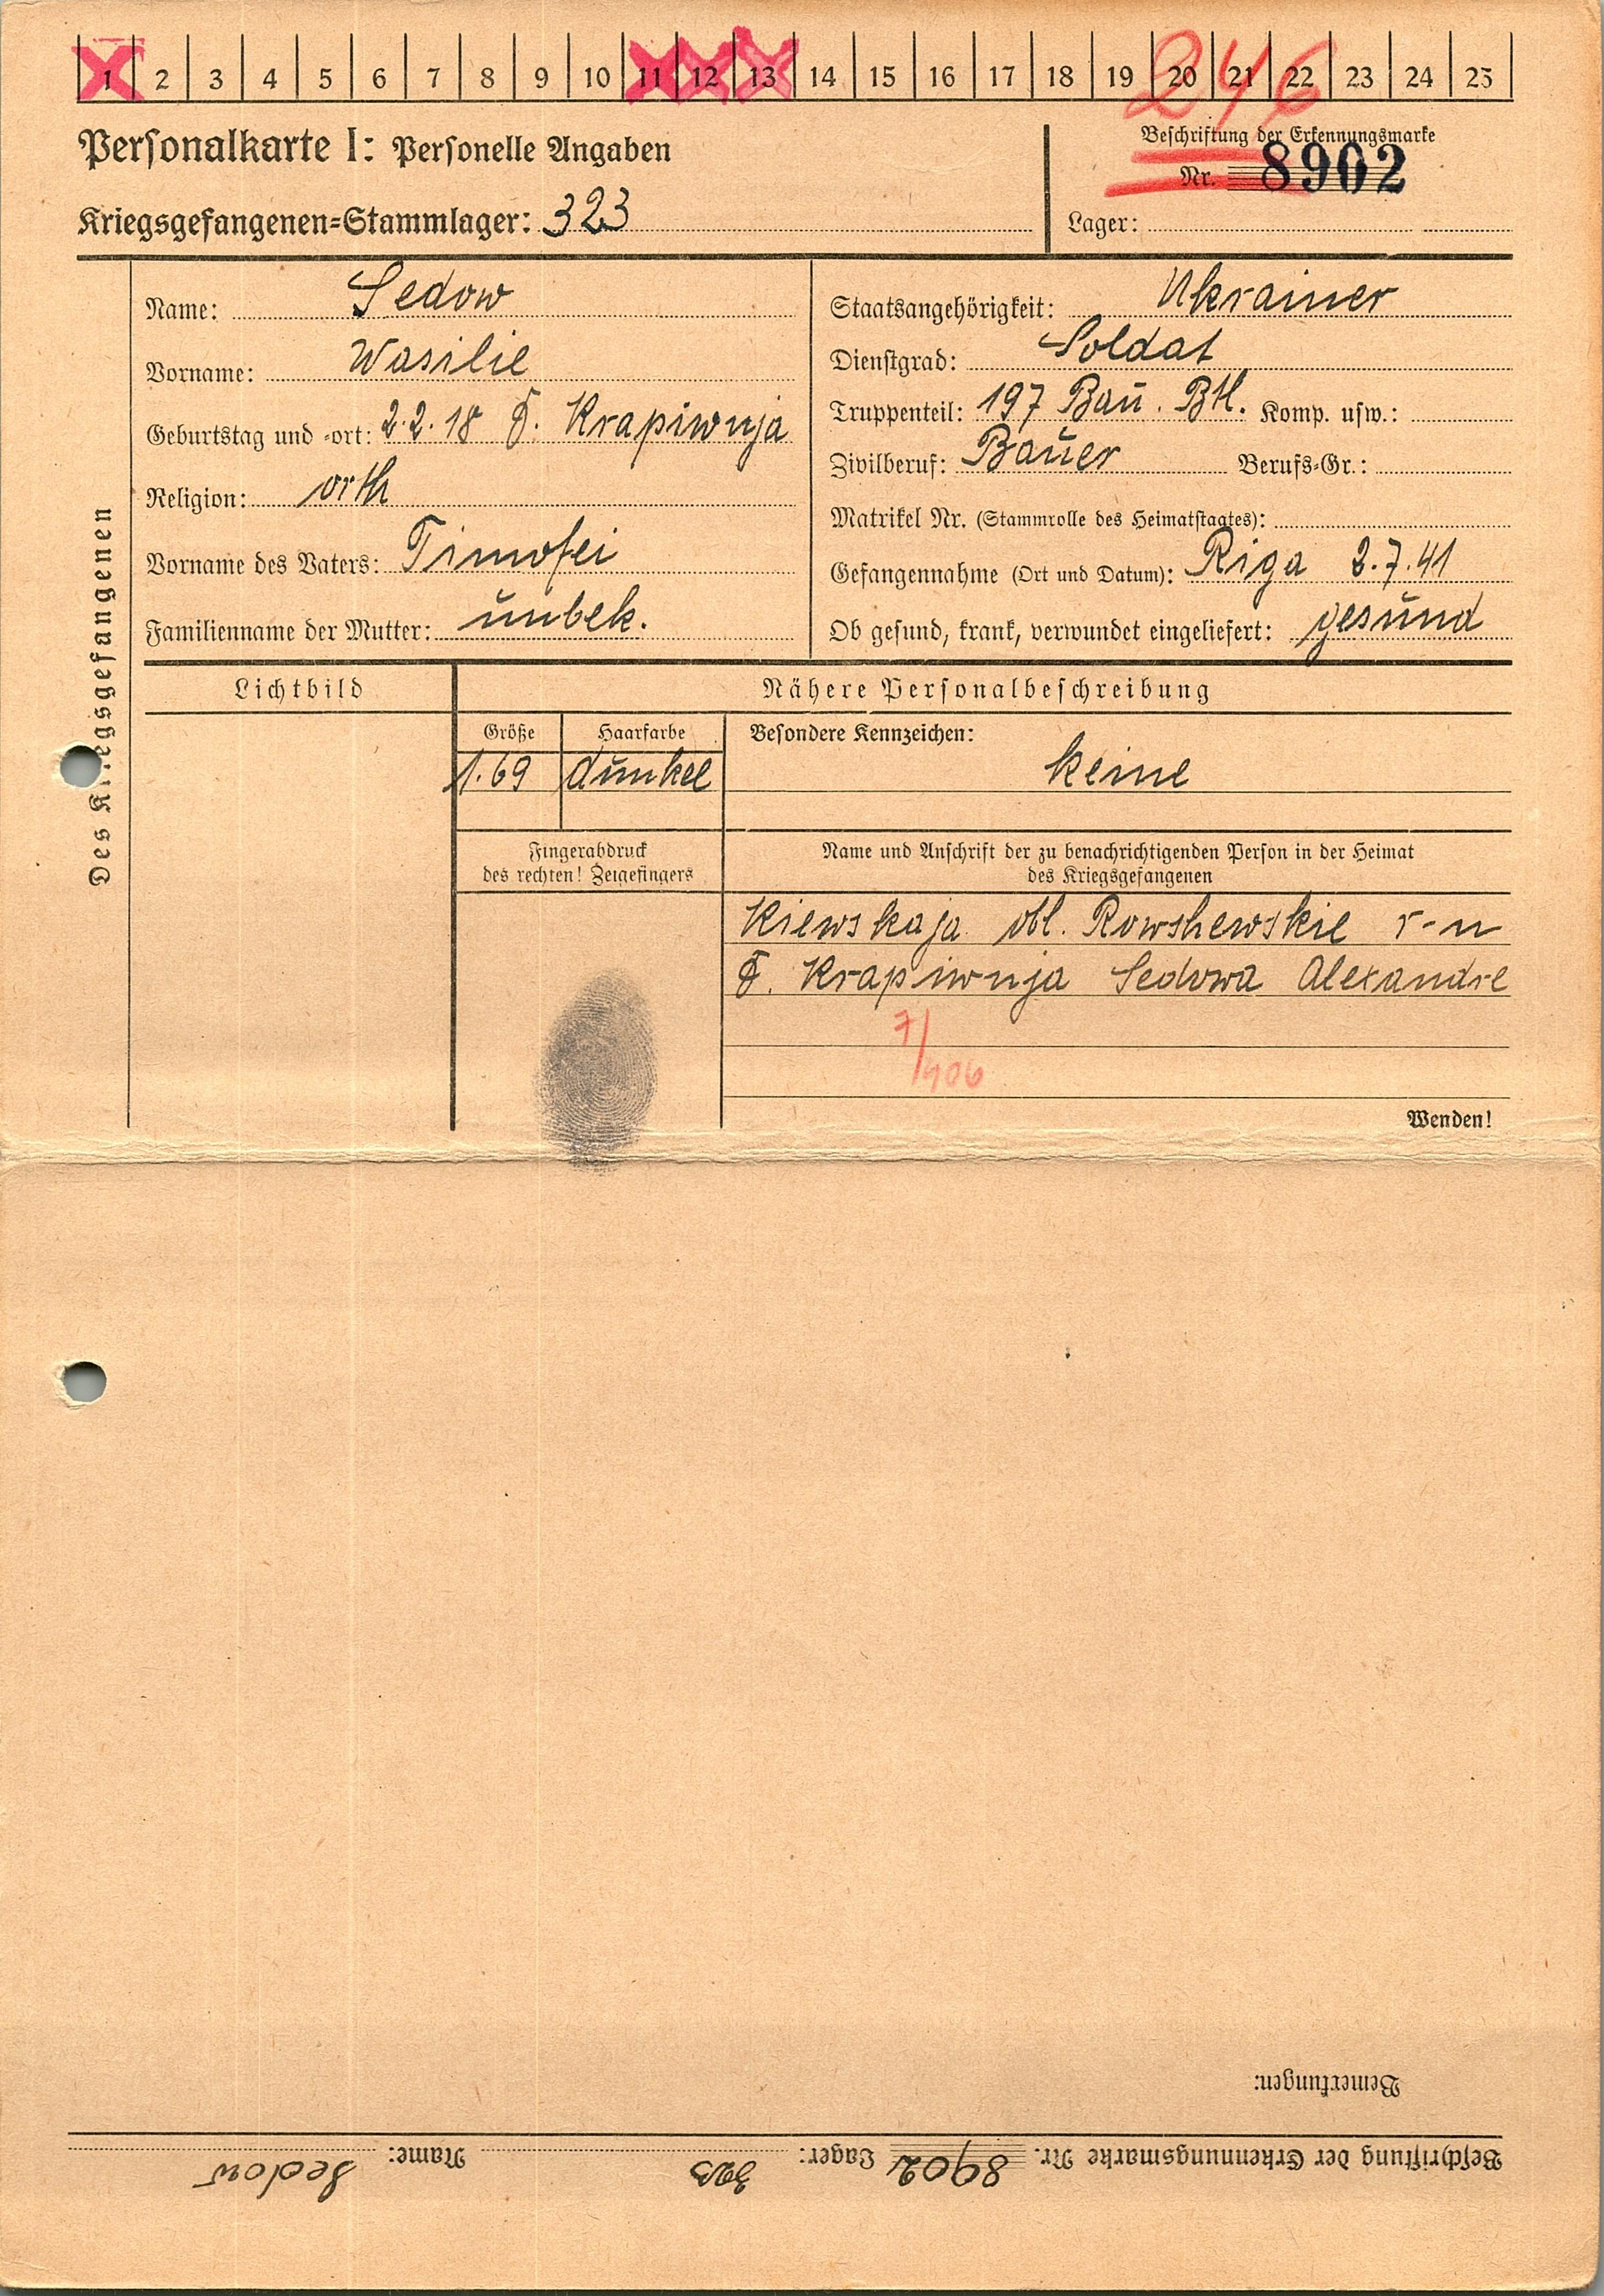 1 2 3 4 5 6 7 8 9 10 11 12 13 14 15 16 17 18 19 20 21 22 23 24 25
246
Personalkarte I: Personelle Angaben
Kriegsgefangenen-Stammlager: 323
Beschriftung der Erkennungsmarke
Nr. 8902
Lager:
Des Kriegsgefangenen
Name: Sedow
Vorname: Wasilie
Geburtstag und -ort: 2.2.18 d. Krapiwnja
Religion: orth
Vorname des Vaters: Timofei
Familienname der Mutter: unbek.
Staatsangehörigkeit: Ukrainer
Dienstgrad: Soldat
Truppenteil: 197 Bau. Btl. Komp. usw.:
Zivilberuf: Bauer Berufs-Gr.:
Matrikel Nr. (Stammrolle des Heimatstaates):
Gefangennahme (Ort und Datum): Riga 2.7.41
Ob gesund, krank, verwundet eingeliefert: gesund
Lichtbild
Nähere Personalbeschreibung
Größe Haarfarbe Besondere Kennzeichen:
1.69 dunkel keine
Fingerabdruck
des rechten! Zeigefingers
Name und Anschrift der zu benachrichtigenden Person in der Heimat
des Kriegsgefangenen
Kiewskaja obl. Rowshewskie r-n
d. Krapiwnja Sedowa Alexandre
7/406
Wenden!
Bemerkungen:
Beschriftung der Erkennungsmarke Nr. 8902 Lager: 323 Name: Sedow